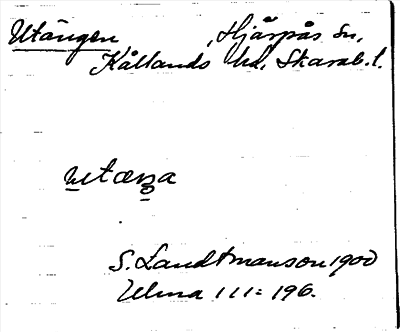 Utängen Hjärpås Sn.
Kållands hd. Skarab. l.
utæŋa
S. Landtmanson 1900
Ulma 111: 196.